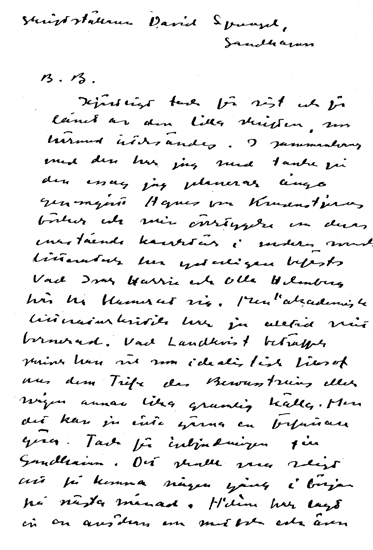 Skriftställaren David Sprengel,
Sandhamn
B. B.
Hjärtligt tack för sist och för
lånet av den lilla skriften, som
härmed återsändes. I sammanhang
med den har jag med tanke på
den essay jag planerar ånyo
genomgått Agnes von Krusenstjernas
böcker och min övertygelse om deras
enastående karaktär i modern
litteratur har ytterligare
Vad Ivar Harrie och Olle Holmberg
Men "akademiska
litteraturkritik har ju alltid
bornerad. Vad Landkvist beträffar
han sit som idealistisk filosof
aus dem Tiefe des Bewusstseins eller
någon annan lika grumlig källa. Men
det kan ju inte gärna en författare
göra. Tack för inbjudningen till
Sandhamn. Det skulle vara roligt
att få komma någon gång i början
på nästa månad. har
in en om och även